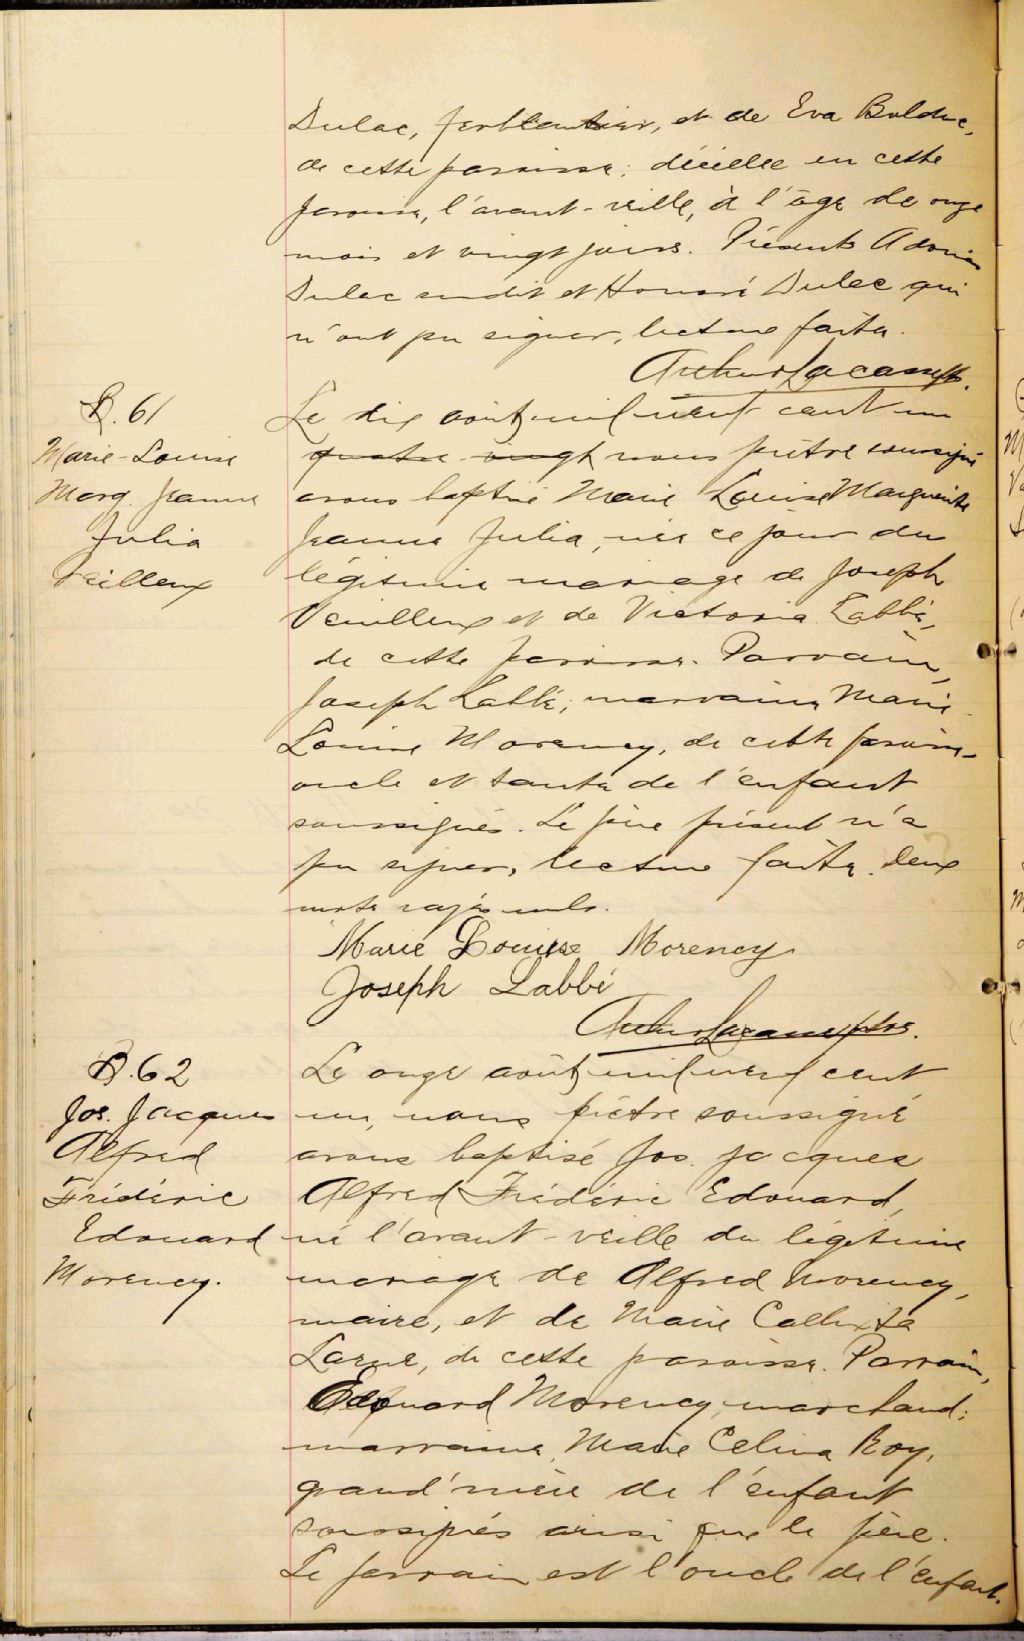 Dulac, ferblantier, et de Eva Bolduc,
de cette paroisse; décédée en cette
paroisse, l'avant-veille, à l'âge de onze
mois et vingt jours. Présents Adonias
Dulac susdit et Honoré Dulac qui
n'ont pu signer, lecture faite.
Arthur Lacasse ptre.
B. 61
Marie-Louise
Marg. Jeanne
Julia
Veilleux
Le dix août mil neuf cent un
quatre-vingt nous prêtre soussigné
avons baptisé Marie Louise Marguerite
Jeanne Julia, née ce jour du
légitime mariage de Joseph
Veilleux et de Victoria Labbé,
de cette paroisse. Parrain,
Joseph Labbé; marraine, Marie
Louise Morency, de cette paroisse,
oncle et tante de l'enfant
soussignés. Le père présent n'a
pu signer, lecture faite. Deux
mots rayés nuls.
Marie Louise Morency
Joseph Labbé
Arthur Lacasse ptre.
B. 62
Jos. Jacques
Alfred
Frédéric
Edouard
Morency.
Le onze août mil neuf cent
un, nous prêtre soussigné
avons baptisé Jos. Jacques
Alfred Frédéric Edouard,
né l'avant-veille du légitime
mariage de Alfred Morency,
maire, et de Marie Callixta
Larue, de cette paroisse. Parrain,
Edouard Morency, marchand;
marraine, Marie Celina Roy,
grand'mère de l'enfant
soussignés ainsi que le père.
Le parrain est l'oncle de l'enfant.